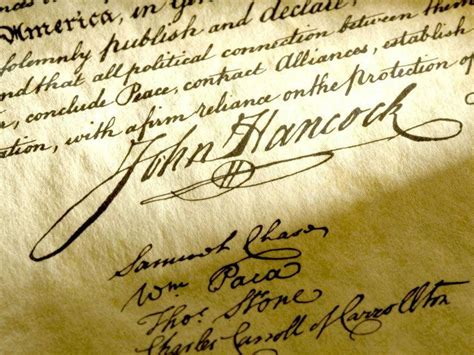 America, in Gen
solemnly publish and declare,
nd that all political connection between them
, conclude Peace, contract Alliances, establish
ation, with a firm reliance on the protection of
John Hancock
Samuel Chase
Wm. Paca
Thos. Stone
Charles Carroll of Carrollton